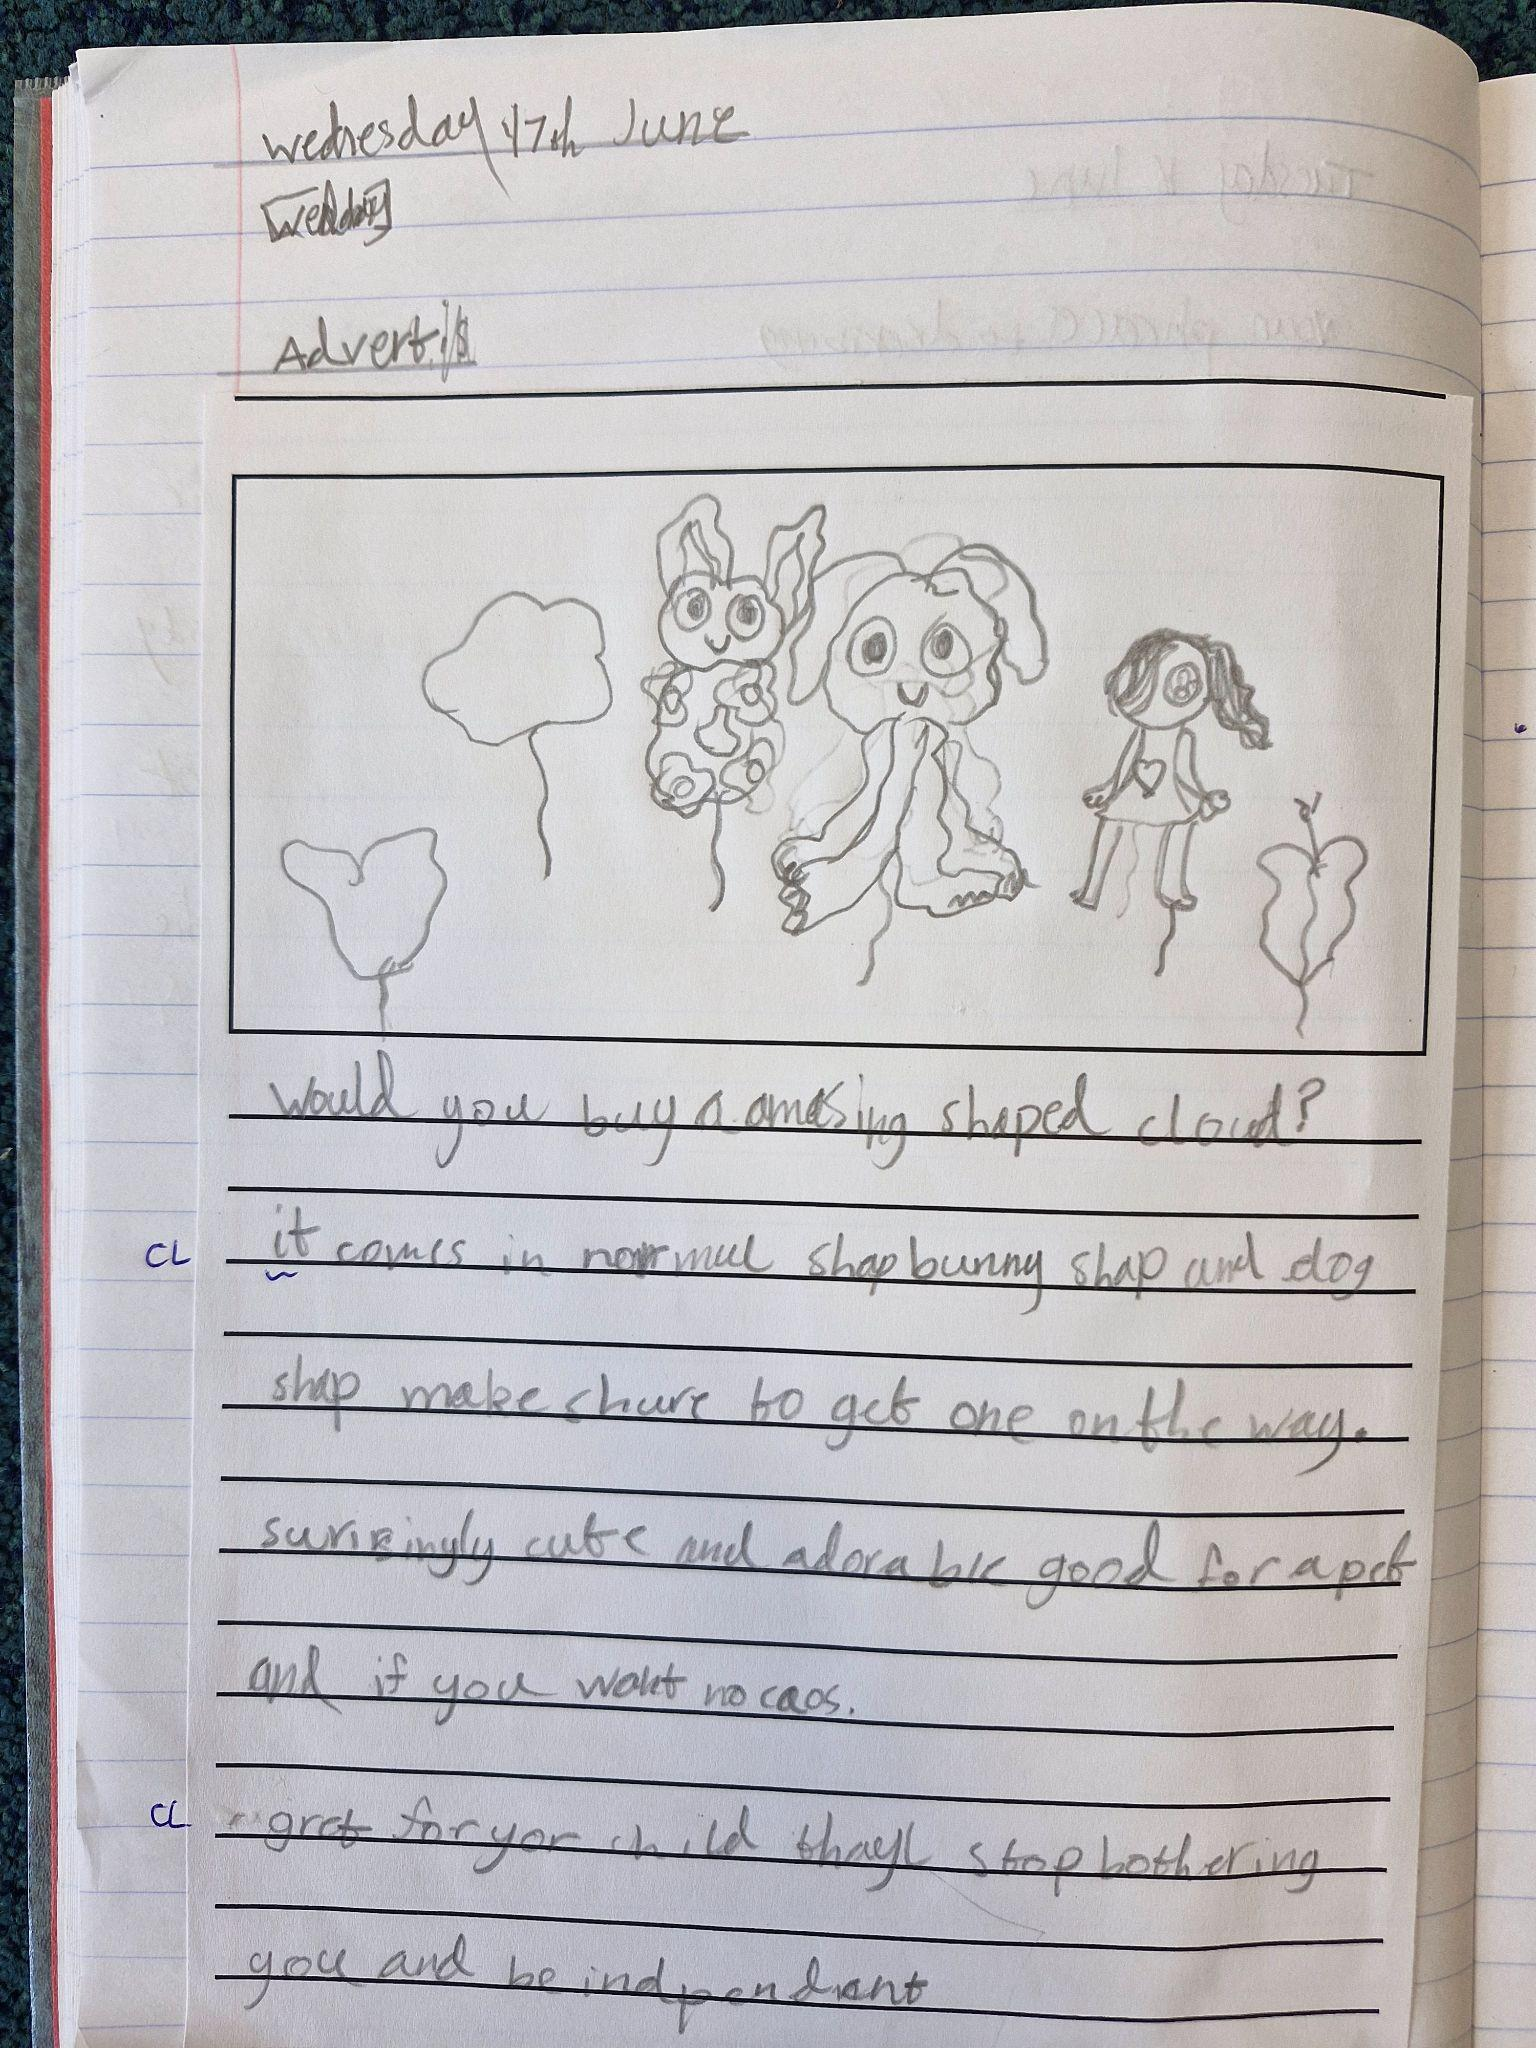 Wednesday 17th June
Advert
Would you buy a amasing shaped cloud?
CL it comes in normul shap bunny shap and dog
shap make shure to get one on the way.
surizingly cute and adorable good for a pet
and if you want no caos.
CL gret for yor child thayl stop bothering
you and be indpendant